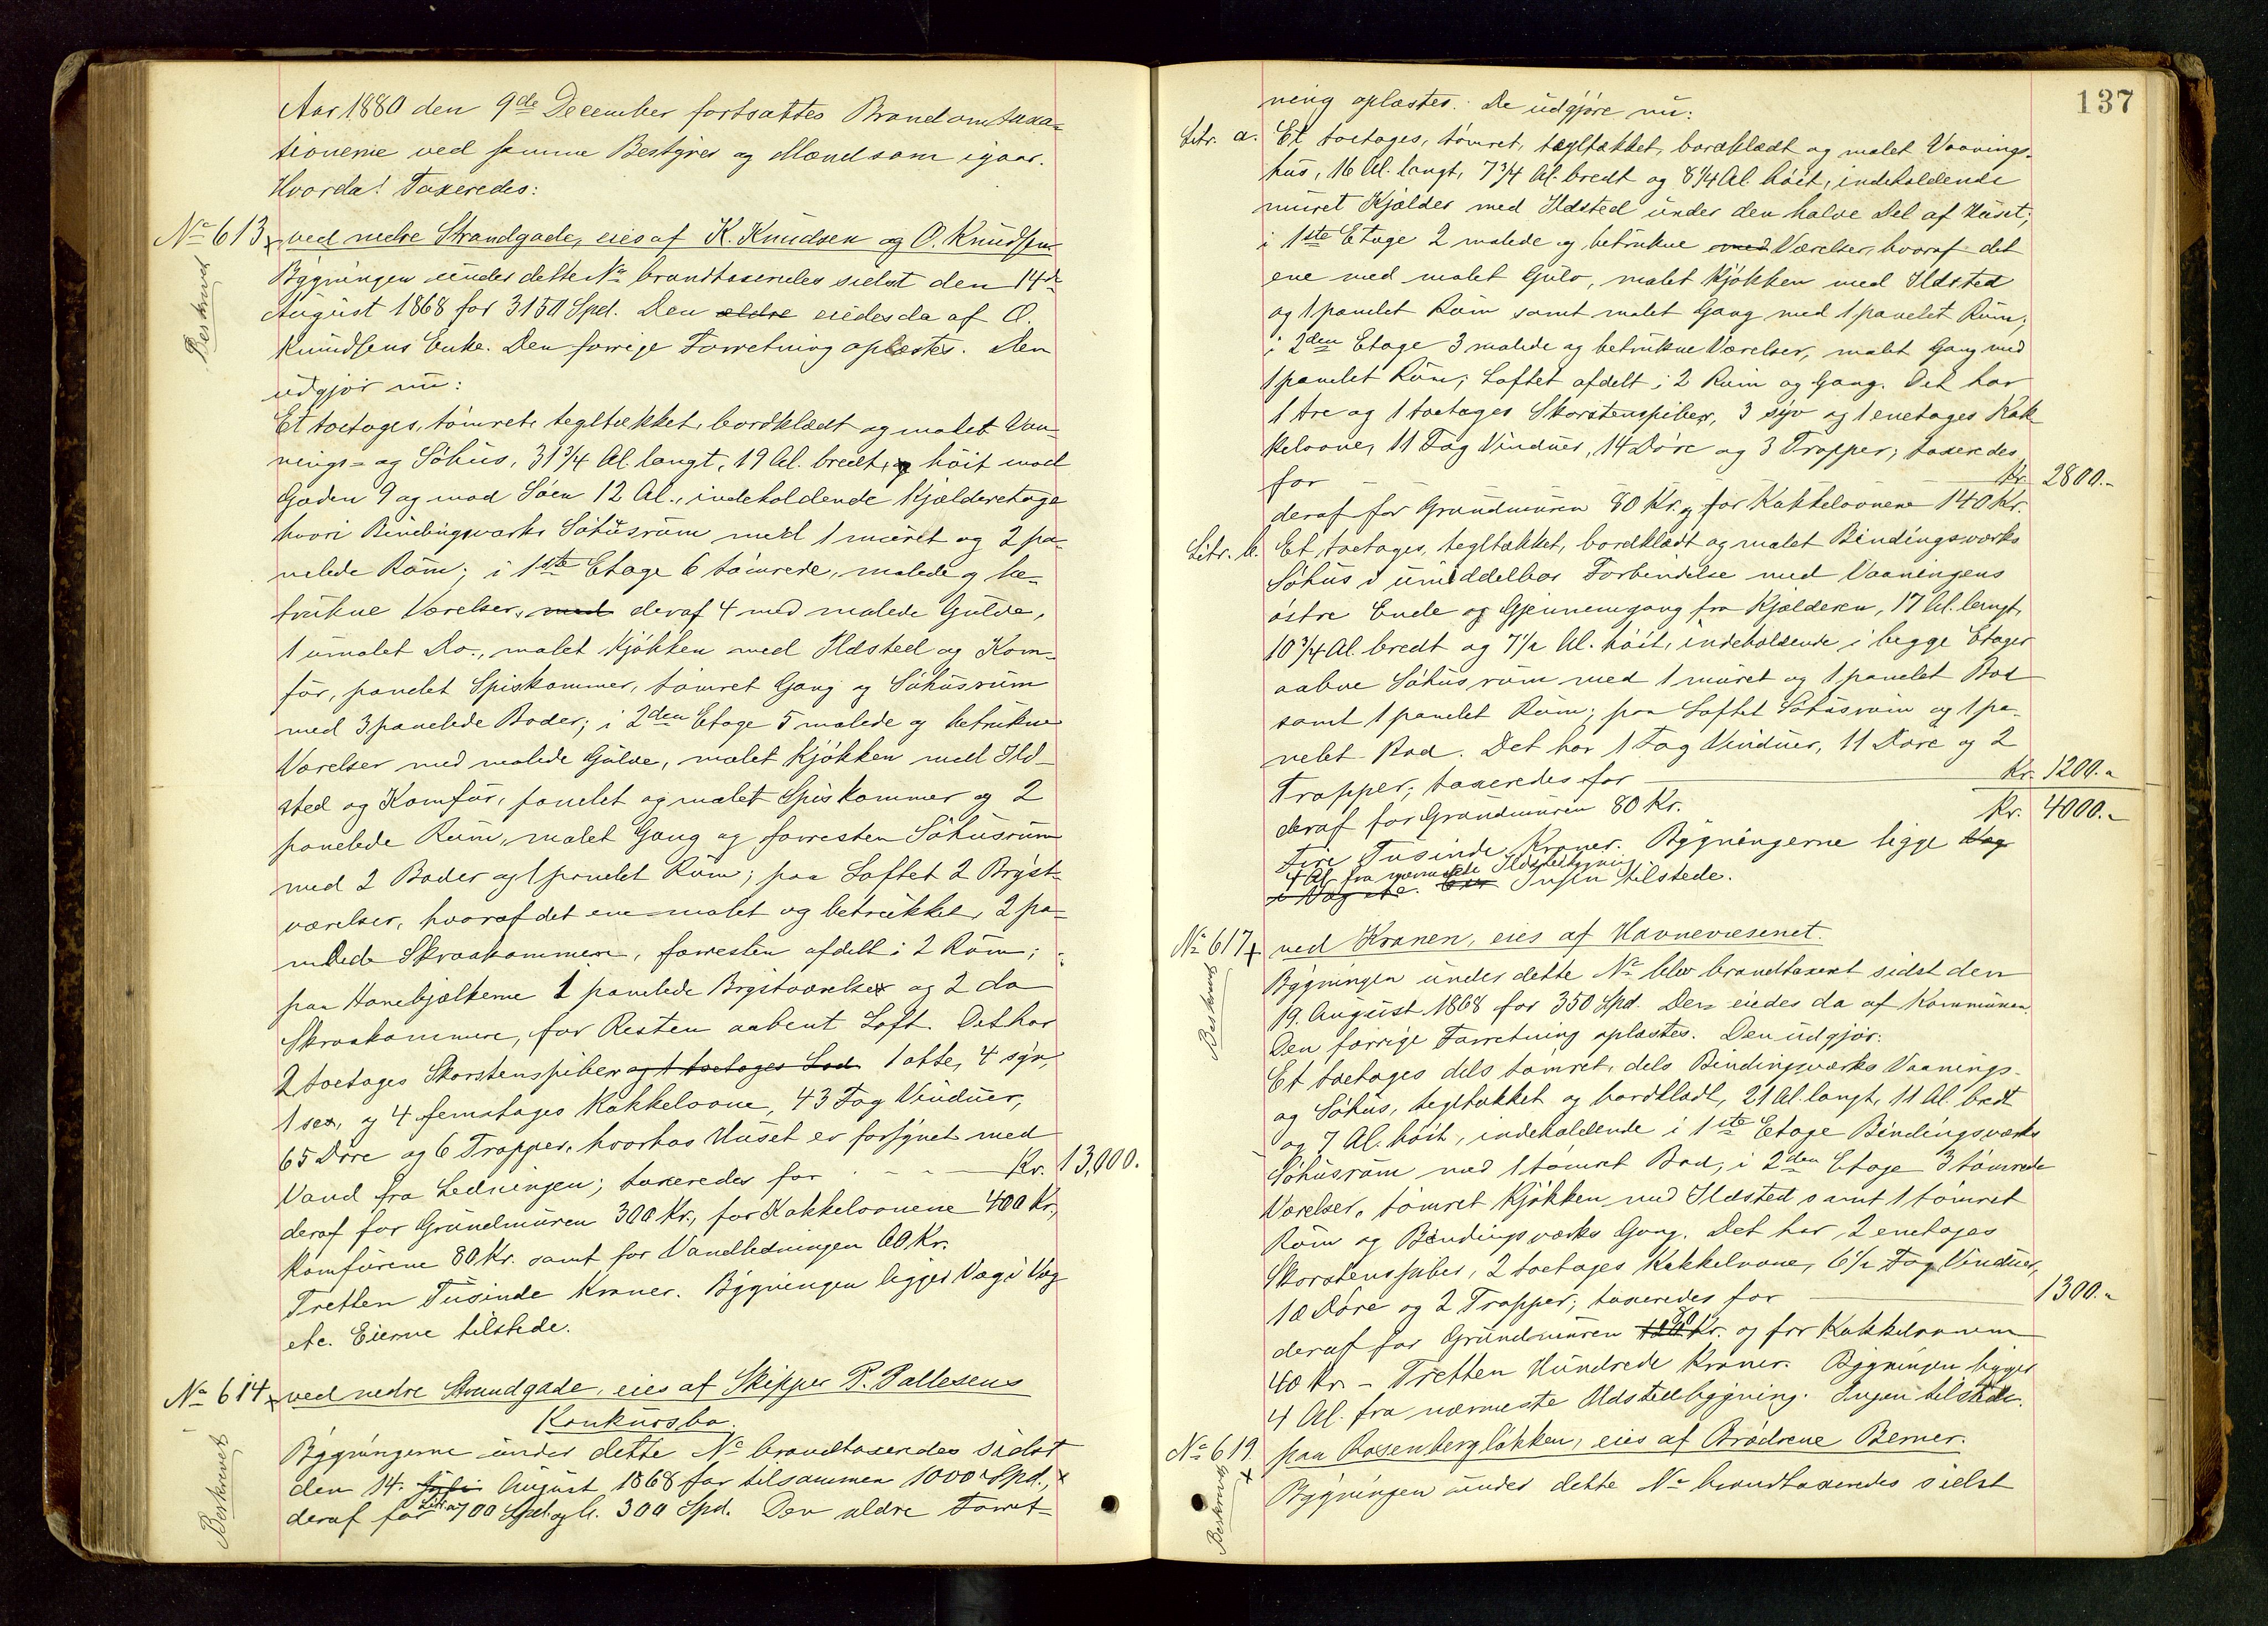 Aar 1880 den 9de December fortsattes Brandomtaxa-
tionerne ved samme Bestyrer og Mænd som igaar.
Hvorda! Taxeredes:
No 613 ved nedre Strandgade, eies af K. Knudsen og O. Knudsen
Beskrevet
Bygningen under dette No brandtaxeredes sidst den 14de
August 1868 for 3150 Spd. Den ældre eiedes da af O.
Knudsens Enke. Den forrige Forretning oplæstes. Den
udgjør nu:
Et toetages, tømret, tegltækket, bordklædt og malet Vaa-
nings- og Søhus, 31 3/4 Al. langt, 19 Al. bredt, og høit mod
Gaden 9 og mod Søen 12 Al., indeholdende Kjælderetage
hvori Bindingsværks Søhusrum med 1 muret og 2 pa-
nelede Rum; i 1ste Etage 6 tømrede, malede og be-
trukne Værelser, med deraf 4 med malede Gulve,
1 umalet Do., malet Kjøkken med Ildsted og Kom-
fur, panelet Spiskammer, tømret Gang og Søhusrum
med 3 panelede Boder; i 2den Etage 5 malede og betrukne
Værelser med malede Gulve, malet Kjøkken med Ild-
sted og Komfur, panelet og malet Spiskammer og 2
panelede Rum, malet Gang og forresten Søhusrum
med 2 Boder og 1 panelet Rum; paa Loftet 2 Bryst-
værelser, hvoraf det ene malet og betrukket, 2 pa-
nelede Skraakammere, forresten afdelt i 2 Rum;
paa Hanebjælkerne 1 panelede Brystværelser og 2 do
Skraakammere, for Resten aabent Loft. Det har
2 toetages Skorstenspiber og 1 toetages Lod 1 otte, 4 syv,
1 sex, og 4 fematages Kakkelovne, 43 Fag Vinduer,
65 Døre og 6 Trapper, hvorhos Huset er forsynet med
Vand fra Ledningen; taxeredes for - - - Kr. 13,000.
deraf for Grundmuren 300 Kr., for Kakkelovnene 400 Kr.,
Komfurene 80 Kr. samt for Vandledningen 60 Kr.
Tretten Tusinde Kroner. Bygningen ligger Væg i Væg
etc. Eierne tilstede.
No 614 ved nedre Strandgade, eies af Skipper P. Pallesens
Konkursbo.
Beskrevet
Bygningerne under dette No brandtaxeredes sidst
den 14. Juli August 1868 for tilsammen 1000 Spd.,
deraf for Litr. a 700 Spd. og b. 300 Spd. Den ældre Forret-
137
ning oplæstes. De udgjøre nu:
Litr. a. Et toetages, tømret, tegltækket, bordklædt og malet Vaanings-
hus, 16 Al. langt, 7 3/4 Al. bredt og 8 1/4 Al. høit, indeholdende
muret Kjælder med Ildsted under den halve Del af Huset;
i 1ste Etage 2 malede og betrukne med Værelser, hvoraf det
ene med malet Gulv, malet Kjøkken med Ildsted
og 1 panelet Rum samt malet Gang med 1 panelet Rum;
i 2den Etage 3 malede og betrukne Værelser, malet Gang med
1 panelet Rum; Loftet afdelt i 2 Rum og Gang. Det har
1 tre og 1 toetages Skorstenspiber, 3 syv og 1 enetages Kak-
kelovne, 11 Fag Vinduer, 14 Døre og 3 Trapper; taxeredes
for Kr. 2800.-
deraf for Grundmuren 80 Kr. og for Kakkelovnene 140 Kr.
Litr. b. Et toetages, tegltækket, bordklædt og malet Bindingsværks
Søhus i umiddelbar Forbindelse med Vaaningens
østre Ende og Gjennemgang fra Kjælderen, 17 Al. langt,
10 3/4 Al. bredt og 7 1/2 Al. høit, indeholdende i begge Etager
aabne Søhusrum med 1 muret og 1 panelet Bod
samt 1 panelet Rum; paa Loftet Søhusrum og 1 pa-
nelet Bod. Det har 1 Fag Vinduer, 11 Døre og 2
Trapper; taxeredes for Kr. 1200.-
deraf for Grundmuren 80 Kr. Kr. 4000.-
Fire Tusinde Kroner. Bygningerne ligge Væg
4 Al. fra nærmeste Ildstedbygning
i Væg etc. Eier Ingen tilstede.
No 617 ved Kranen, eies af Havnevæsenet.
Beskrevet
Bygningen under dette No blev brandtaxeret sidst den
19. August 1868 for 350 Spd. Den eiedes da af Kommunen.
Den forrige Forretning oplæstes. Den udgjør:
Et toetages dels tømret, dels Bindingsværks Vaanings-
og Søhus, tegltækket og bordklædt, 21 Al. langt, 11 Al. bredt
og 7 Al. høit, indeholdende i 1ste Etage Bindingsværks
Søhusrum med 1 tømret Bod, i 2den Etage 3 tømrede
Værelser, tømret Kjøkken med Ildsted samt 1 tømret
Rum og Bindingsværks Gang. Det har 2 enetages
Skorstenspiber, 2 toetages Kakkelovne, 6 1/2 Fag Vinduer,
10 Døre og 2 Trapper; taxeredes for 1300.-
deraf for Grundmuren 80 Kr. og for Kakkelovnene
40 Kr. - Tretten Hundrede Kroner. Bygningen ligger
4 Al. fra nærmeste Ildstedbygning. Ingen tilstede.
No 619 paa Rosenbergløkken, eies af Brødrene Berner.
Beskrevet
Bygningen under dette No brandtaxeredes sidst